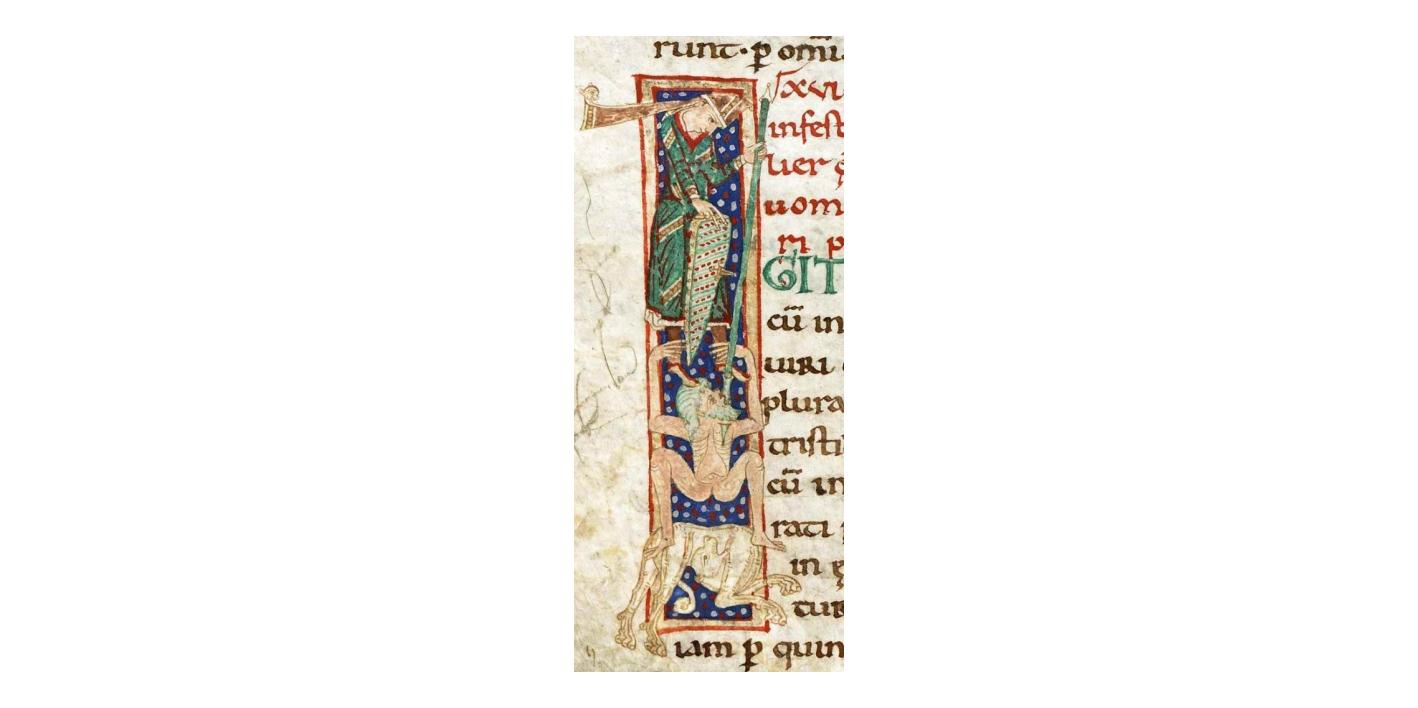 runt· p̱ om̄i
xvi
infest
lier
uom
m̄ p
GIT
cū in
uiri
plura
tristi
cū in
rati
in
tur
iam p̱ quin